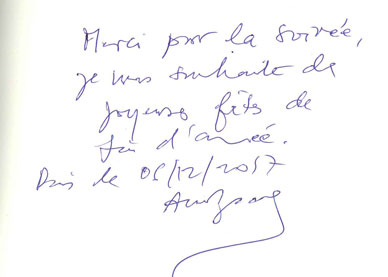 Merci pour la soirée,
je vous souhaite de
joyeuses fêtes de
fin d'année.
Paris le 06/12/2017